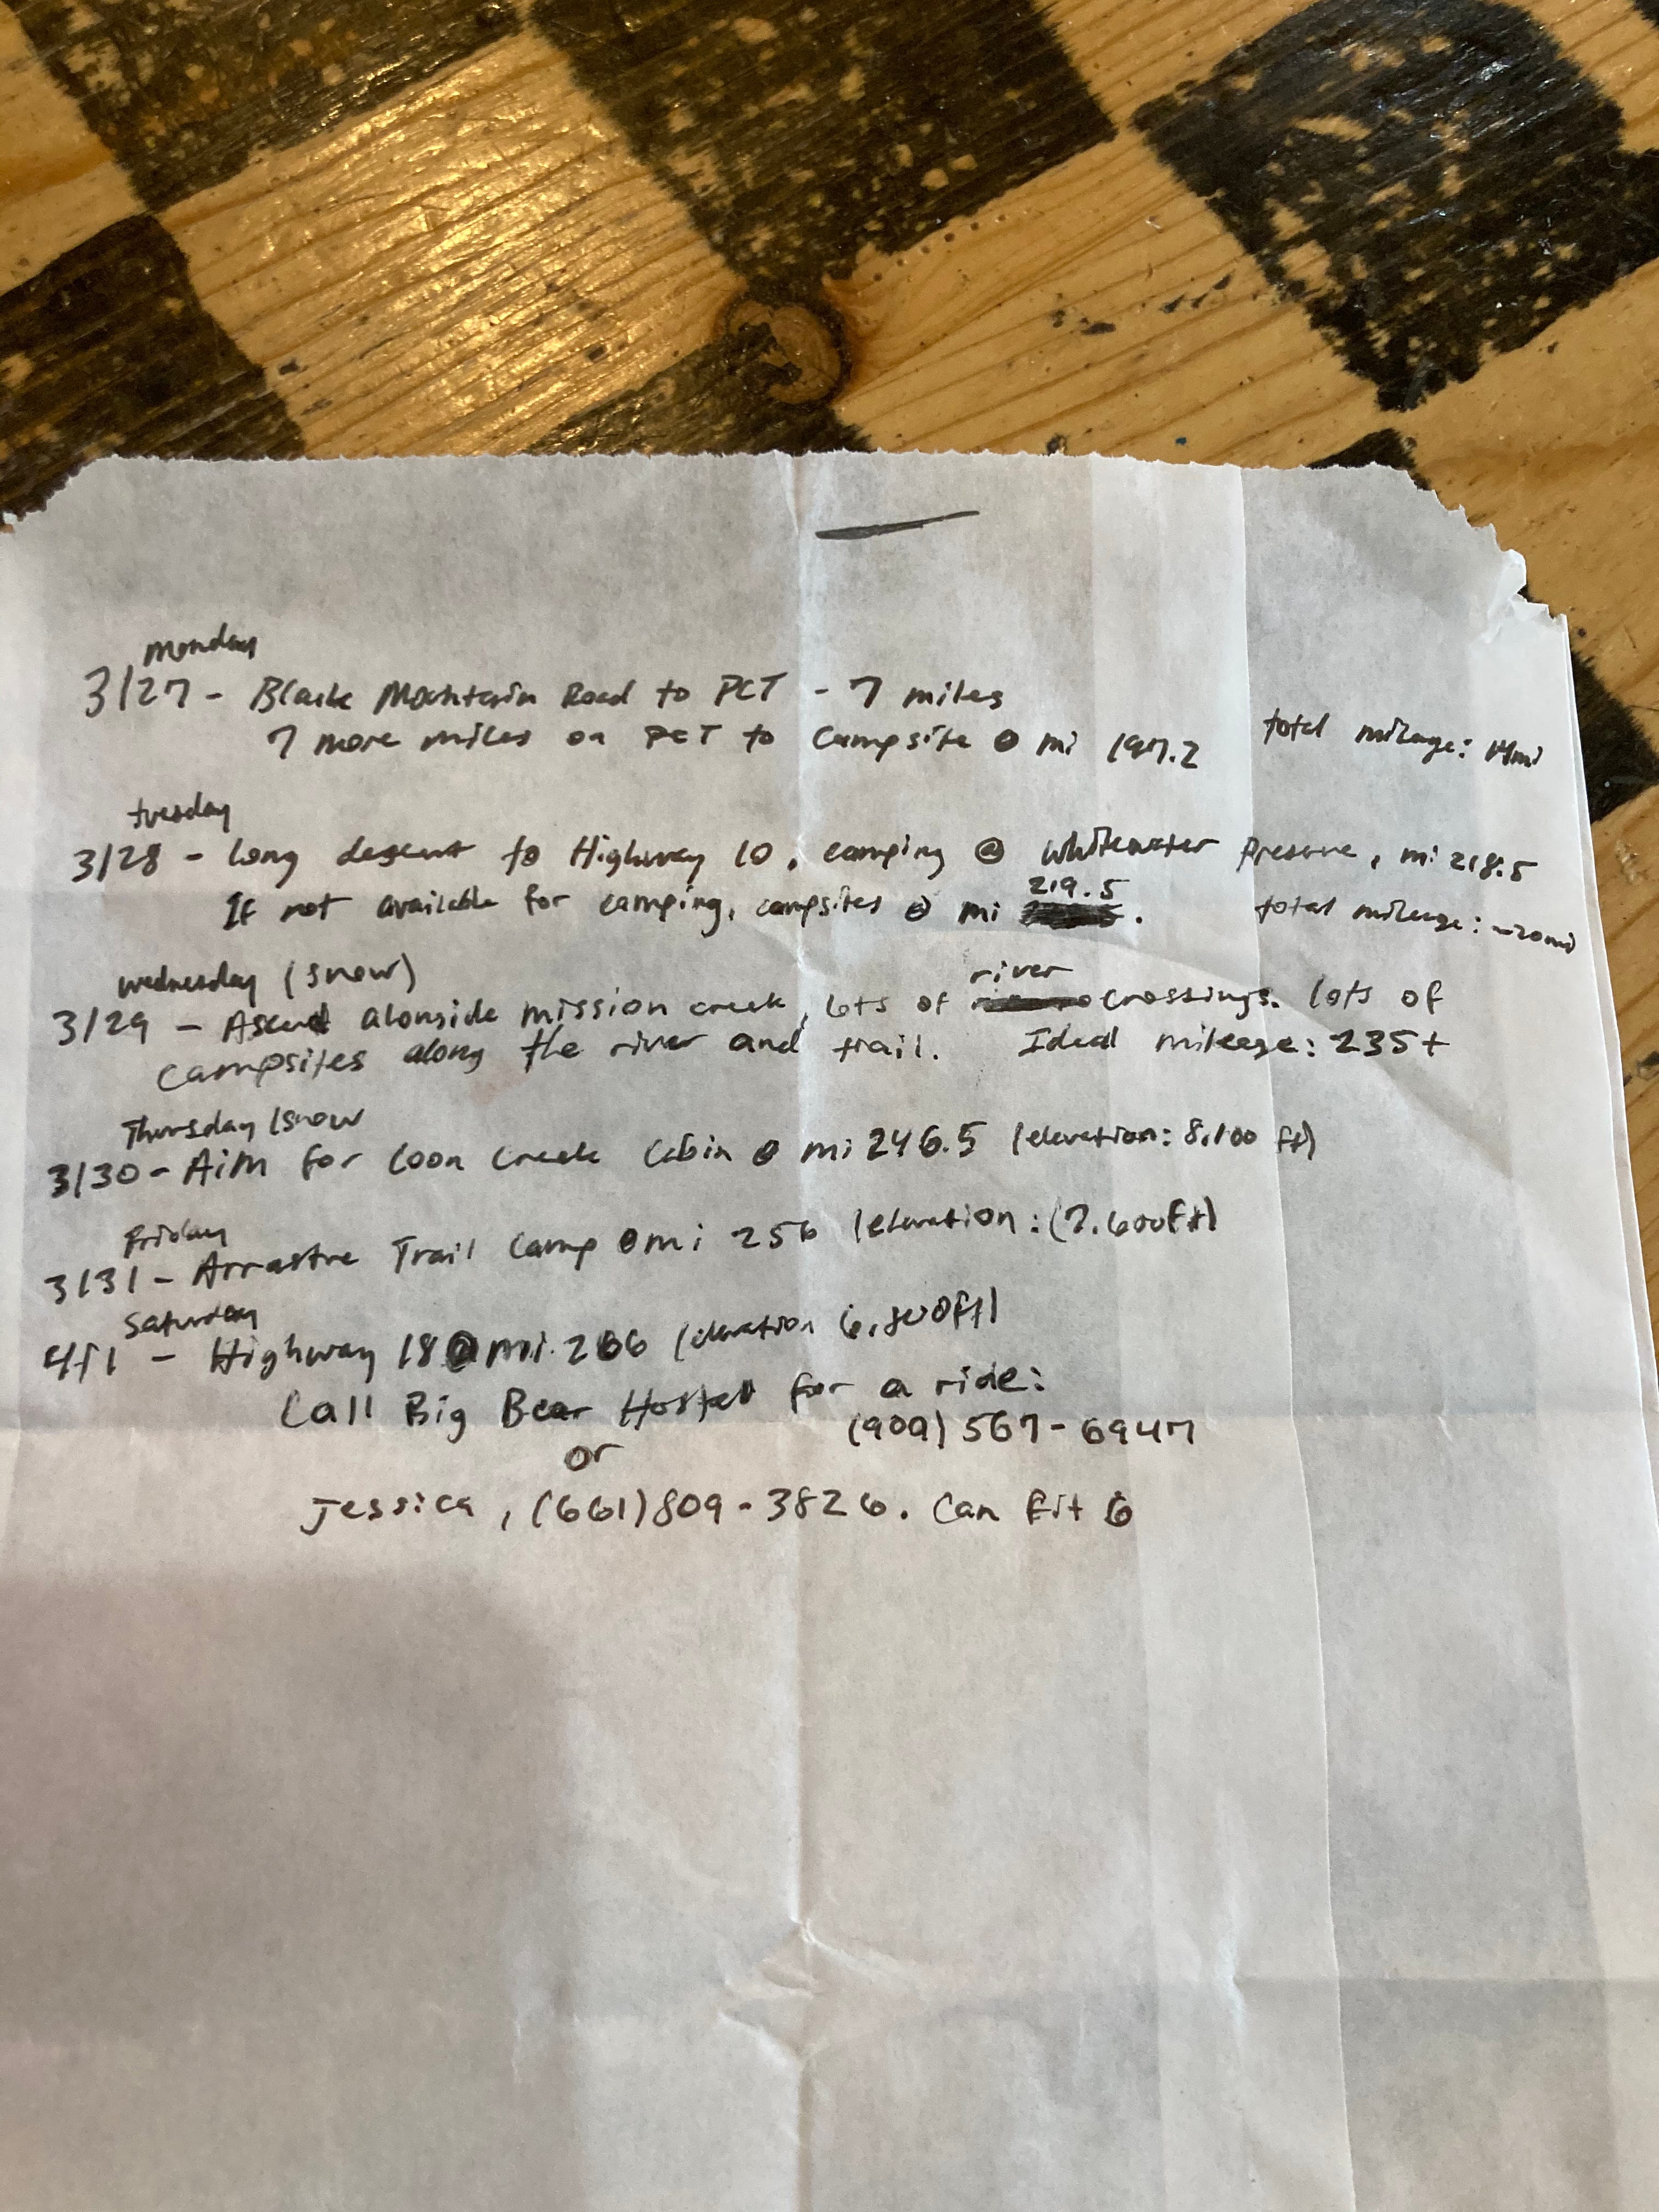 monday
3/27 - Black Mountain Road to PCT - 7 miles
7 more miles on PCT to campsite @ mi 197.2 total mileage: 14mi
tuesday
3/28 - Long descent to Highway 10, camping @ Whitewater Preserve, mi 218.5
219.5
If not available for camping, campsites @ mi . total mileage: ~20mi
wednesday (snow)
river
3/29 - Ascend alonside mission creek, lots of crossings. lots of
campsites along the river and trail. Ideal mileage: 235+
Thursday (snow
3/30 - Aim for Coon Creek Cabin @ mi 246.5 (elevation: 8,100 ft)
Friday
3/31 - Arrastre Trail Camp @ mi 256 (elevation: (7,600ft)
Saturday
4/1 - Highway 18 @ mi. 266 (elevation 6,800ft)
Call Big Bear Hostel for a ride:
(909) 567-6947
or
Jessica, (661) 809-3826. Can fit 6